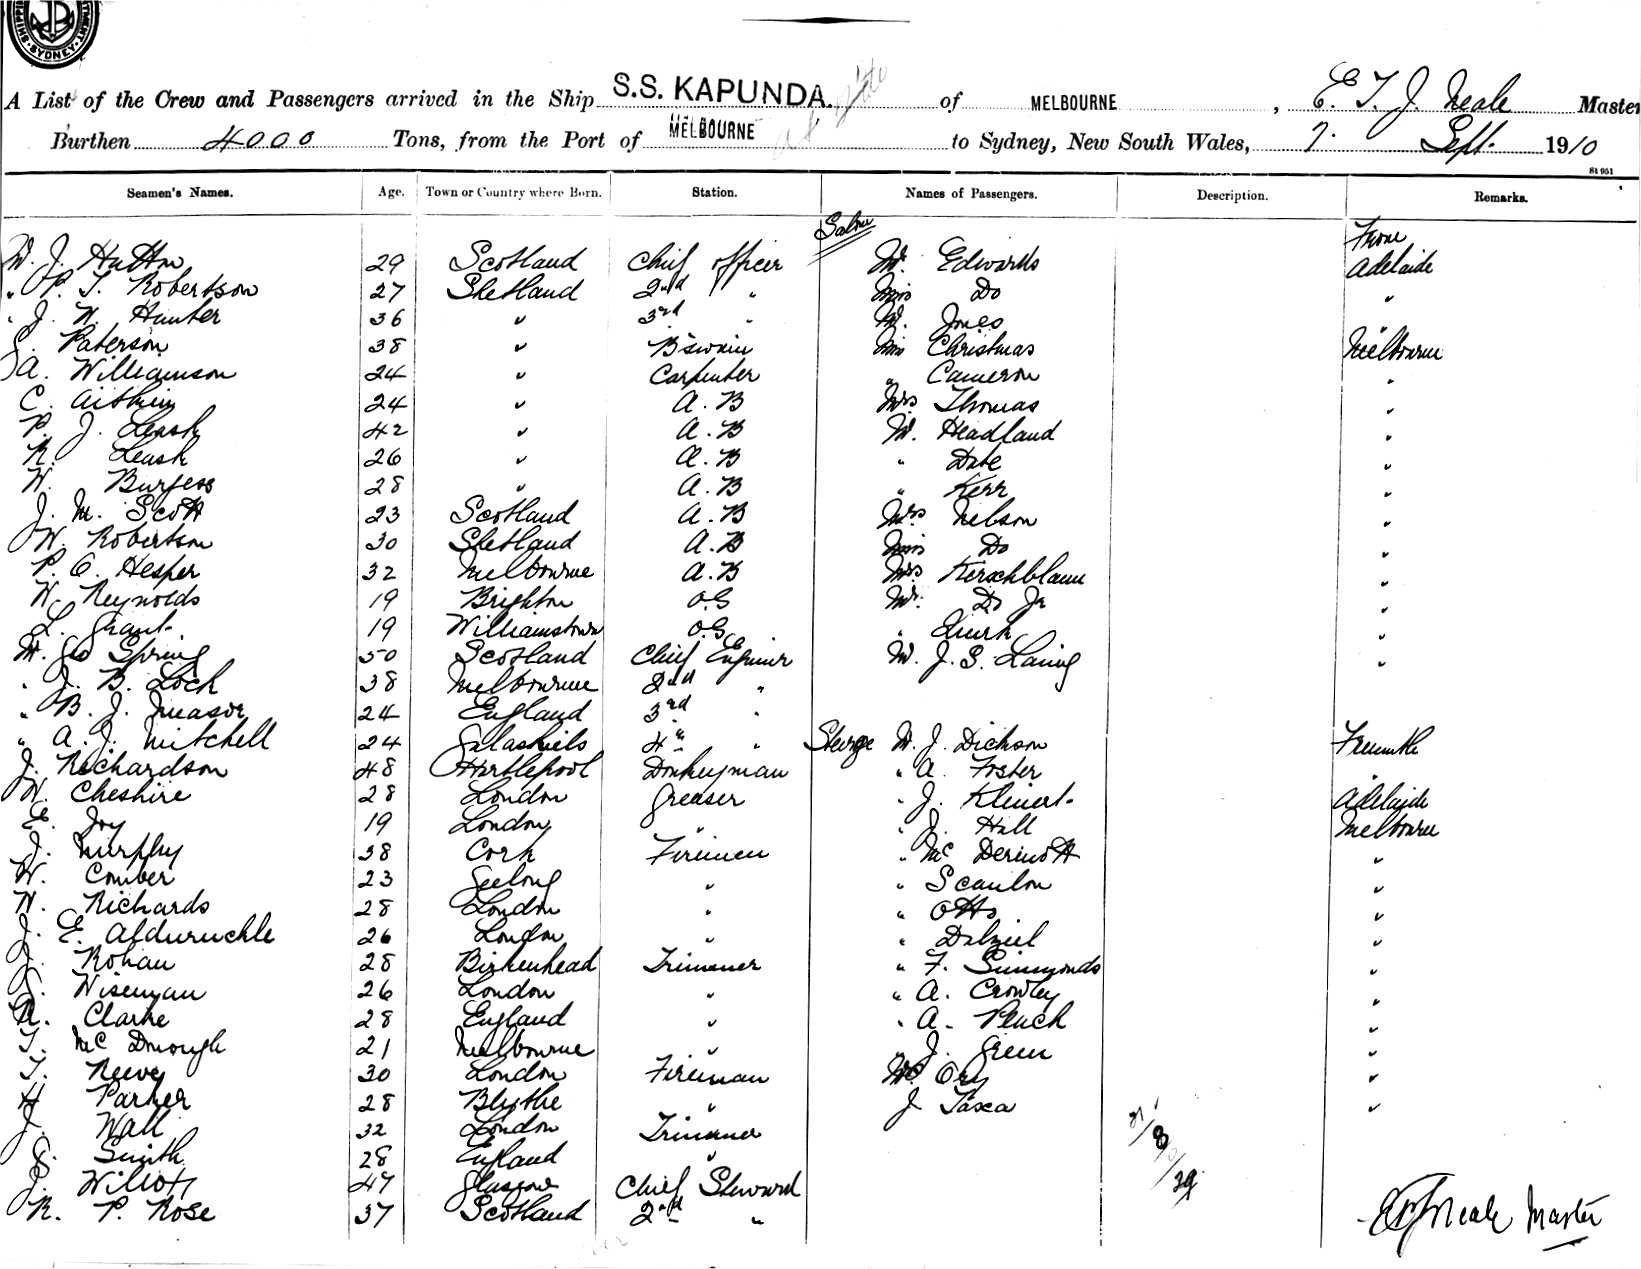 SYDNEY
A List of the Crew and Passengers arrived in the Ship S.S. KAPUNDA. of MELBOURNE, E. T. J. Neale Master
Burthen 4000 Tons, from the Port of MELBOURNE to Sydney, New South Wales, 7. Sept. 1910
81951
Seamen's Names. Age. Town or Country where Born. Station. Names of Passengers. Description. Remarks.
Saloon From
W. J. Hutton 29 Scotland Chief Officer Mr. Edwards Adelaide
" P. T. Robertson 27 Shetland 2nd " Miss Do "
" J. W. Hunter 36 " 3rd " Mr. Jones "
J. Paterson 38 " B'swain Miss Christmas Melbourne
A. Williamson 24 " Carpenter " Cameron "
C. Aitken 24 " A.B Mrs Thomas "
P. J. Leask 42 " A.B Mr. Headland "
R. Leask 26 " A.B " Date "
W. Burgess 28 " A.B " Kerr "
J. M. Scott 23 Scotland A.B Mrs Nelson "
W. Robertson 30 Shetland A.B Miss Do "
P. O. Hesper 32 Melbourne A.B Mrs Kerschblaum "
W. Reynolds 19 Brighton O.S Mr. Do Jr "
L. Grant 19 Williamstown O.S " Quirk "
M. Geo Spring 50 Scotland Chief Engineer Mr. J. S. Laing "
" J. B. Lock 38 Melbourne 2nd "
" B. J. Measor 24 England 3rd "
" A. J. Mitchell 24 Galashiels 4th " Steerge Mr. J. Dickson Freemtle
J. Richardson 48 Hartlepool Donkeyman " A. Foster "
W. Cheshire 28 London Greaser " J. Klinert Adelaide
E. Joy 19 London " " J. Hall Melbourne
J. Murphy 38 Cork Firemen " McDermott "
W. Comber 23 Geelong " " Scanlon "
W. Richards 28 London " " Otto "
J. E. 26 London " " Dalziel "
J. Rohan 28 Birkenhead Trimmer " F. Simmonds "
J. Wiseman 26 London " " A. Crowley "
A. Clarke 28 England " " A. Pluck "
T. McDonough 21 Melbourne " " J. Green "
T. Reeve 30 London Fireman "
H Parker 28 Blythe " J Tasca "
J. Wall 32 London Trimmer
G. Smith 28 England "
J. 47 Glasgow Chief Steward
R. P. Rose 37 Scotland 2nd "
Neale Master